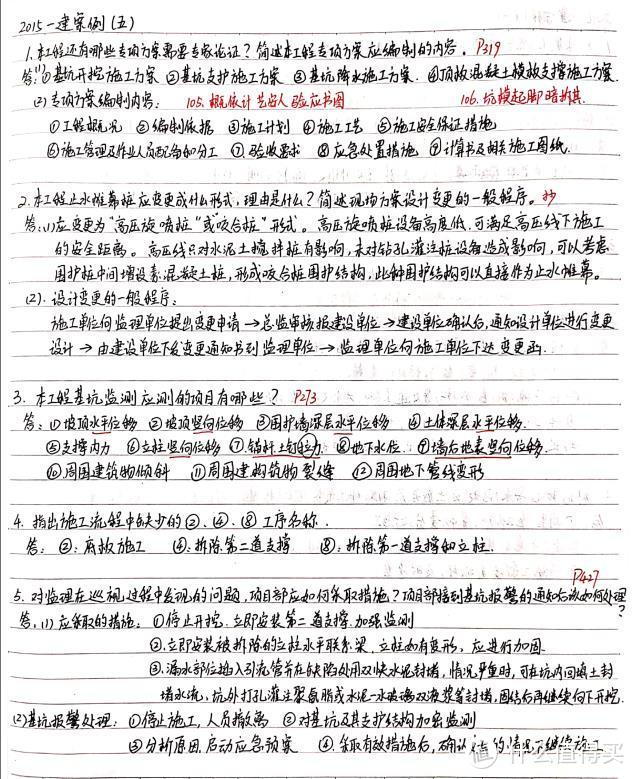 2015一建案例(五)
1.本工程还有哪些专项方案需要专家论证?简述本工程专项方案应编制的内容。P319
答:(1)①基坑开挖施工方案 ②基坑支护施工方案 ③基坑降水施工方案. ④顶板混凝土模板支撑施工方案.
(2)专项方案编制内容: 105.概依计艺安人验应书图 106.坑模起脚暗拆其.
①工程概况 ②编制依据 ③施工计划 ④施工工艺 ⑤施工安全保证措施
⑥施工管理及作业人员配备和分工 ⑦验收要求 ⑧应急处置措施 ⑨计算书及相关施工图纸.
2.本工程止水帷幕桩应变更成什么形式,理由是什么?简述现场方案设计变更的一般程序。抄
答:(1)应变更为"高压旋喷桩"或"咬合桩"形式。高压旋喷桩设备高度低,可满足高压线下施工
的安全距离。高压线只对水泥土搅拌桩有影响,未对钻孔灌注桩设备造成影响,可以考虑
围护桩中间增设素混凝土桩,形成咬合桩围护结构,此种围护结构可以直接作为止水帷幕。
(2).设计变更的一般程序:
施工单位向监理单位提出变更申请→总监审核报建设单位→建设单位确认后,通知设计单位进行变更
设计→由建设单位下发变更通知书到监理单位→监理单位向施工单位下达变更函.
3.本工程基坑监测应测的项目有哪些? P273
答:①坡顶水平位移 ②坡顶竖向位移 ③围护墙深层水平位移 ④土体深层水平位移.
⑤支撑内力 ⑥立柱竖向位移 ⑦锚杆土钉拉力 ⑧地下水位 ⑨墙后地表竖向位移
⑩周围建筑物倾斜 ⑪周围建构筑物裂缝 ⑫周围地下管线变形
4.指出施工流程中缺少的②、④、⑧工序名称.
答:②:底板施工 ④:拆除第二道支撑 ⑧:拆除第一道支撑和立柱.
P427
5.对监理在巡视过程中发现的问题,项目部应如何采取措施?项目部接到基坑报警的通知后该如何处理?
答:(1)应采取的措施:①停止开挖,立即安装第二道支撑.加强监测
②.立即安装被拆除的立柱水平联系梁,立柱如有变形,应进行加固
③.漏水部位插入引流管并在缺陷处用双快水泥封堵,情况严重时,可在坑内回填土封
堵水流,坑外打孔灌注聚氨脂或水泥—水玻璃双液浆等封堵,固结后再继续向下开挖.
(2)基坑报警处理:①停止施工,人员撤离 ②对基坑及其支护结构加密监测
③分析原因,启动应急预案 ④.采取有效措施后,确认安全的情况下继续施工
什么值得买